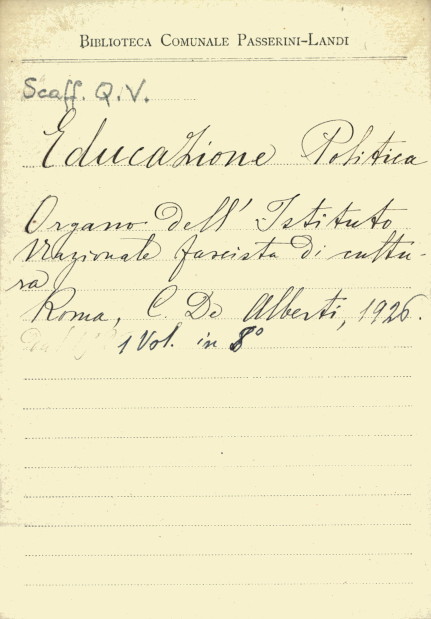 BIBLIOTECA COMUNALE PASSERINI-LANDI
Scaff. Q. V.
Educazione Politica
Organo dell' Istituto
Nazionale fascista di cultu-
ra
Roma, C. De Alberti, 1926.
1 Vol. in 8°